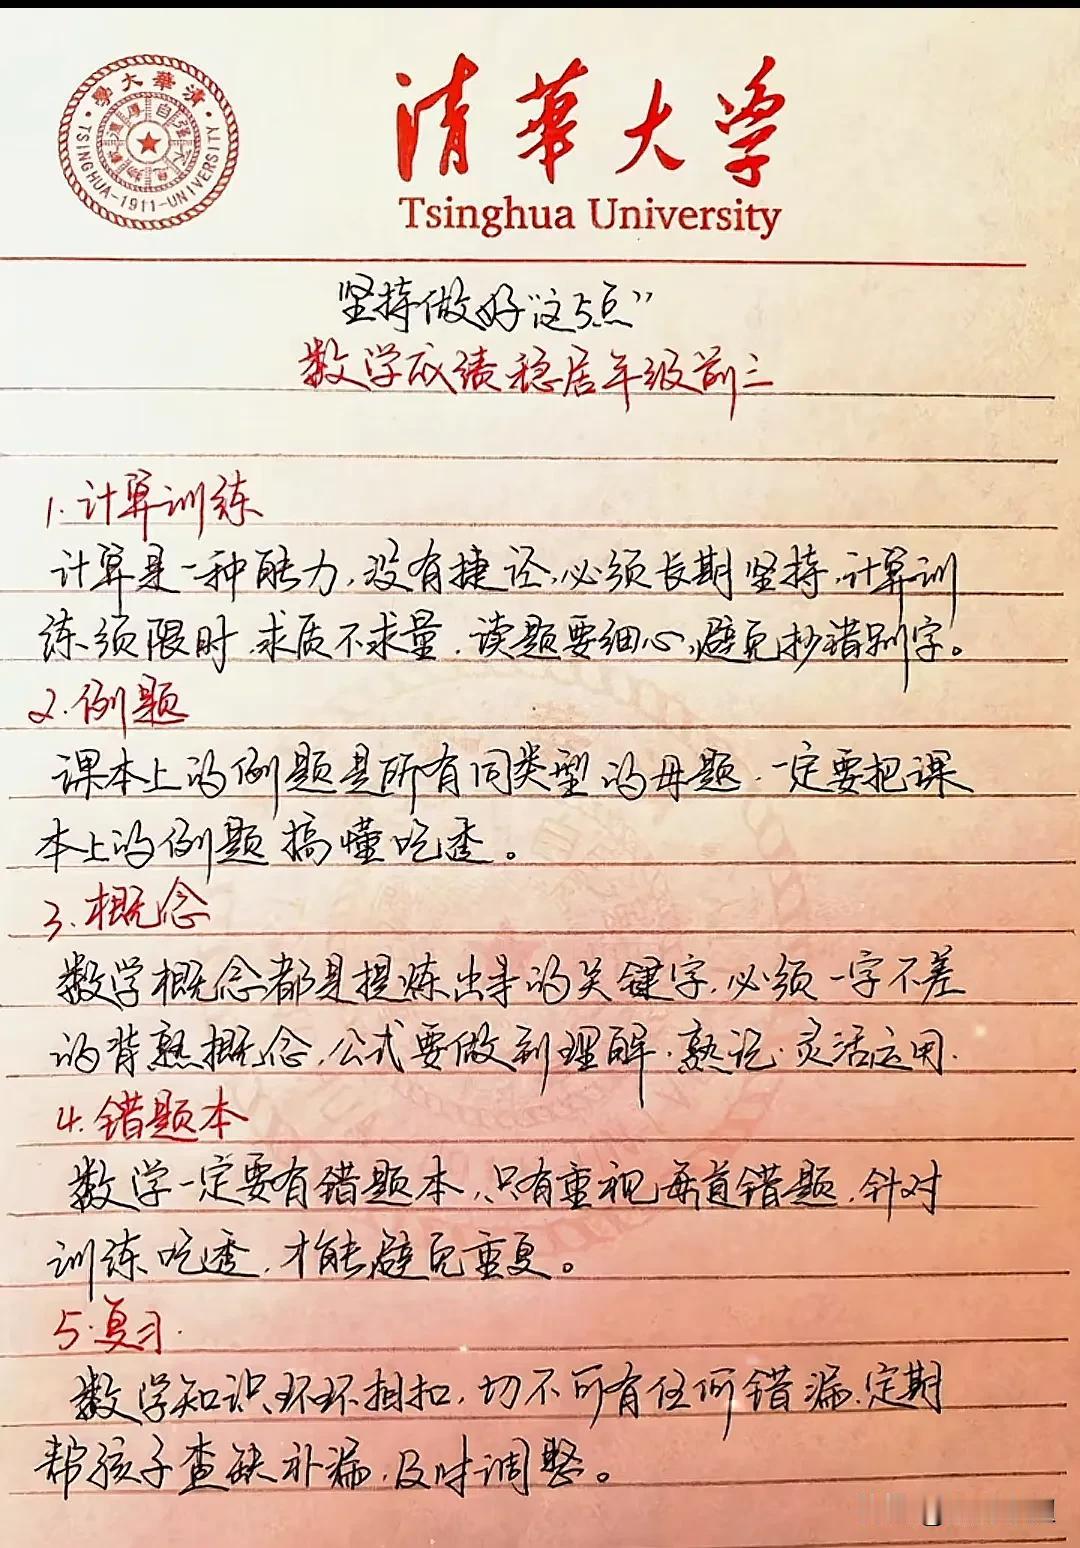 清華大学
Tsinghua University
學大華清
TSINGHUA-1911-UNIVERSITY
坚持做好“这5点”
数学成绩稳居年级前三
1.计算训练
计算是一种能力,没有捷径,必须长期坚持,计算训
练须限时,求质不求量,读题要细心,避免抄错别字。
2.例题
课本上的例题是所有同类型的母题,一定要把课
本上的例题搞懂吃透。
3.概念
数学概念都是提炼出来的关键字,必须一字不差
的背熟概念,公式要做到理解.熟记.灵活运用.
4.错题本
数学一定要有错题本,只有重视每道错题,针对
训练吃透,才能避免重复。
5.复习.
数学知识环环相扣,切不可有任何错漏,定期
帮孩子查缺补漏,及时调整。